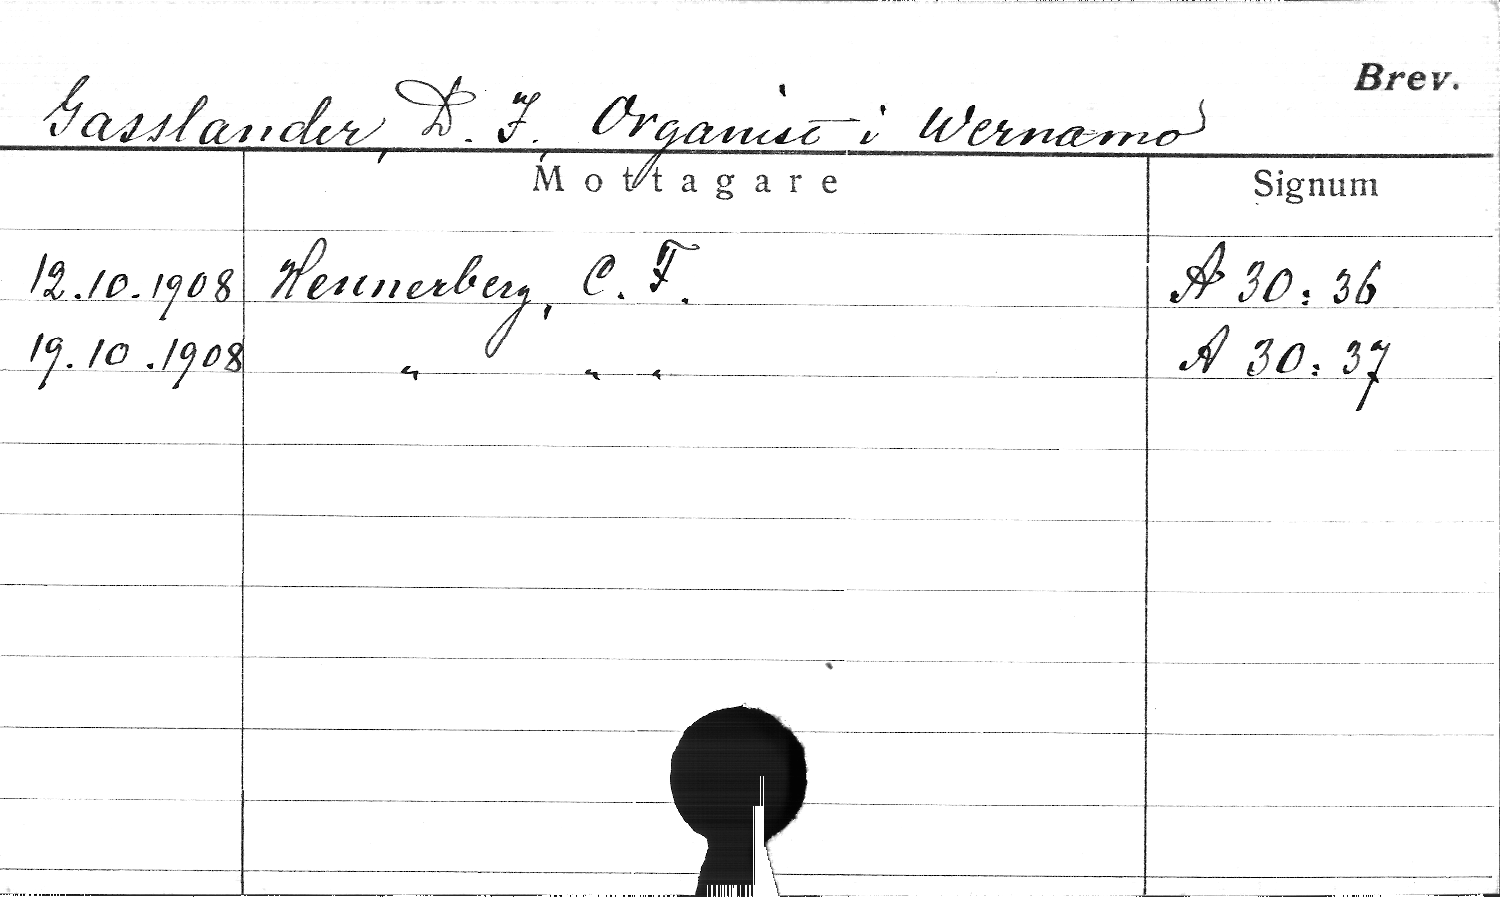 Brev.
Gasslander, D. F., Organist i Wernamo
Mottagare Signum
12.10.1908 Hennerberg, C. F. A 30:36
19.10.1908 " " " A 30:37